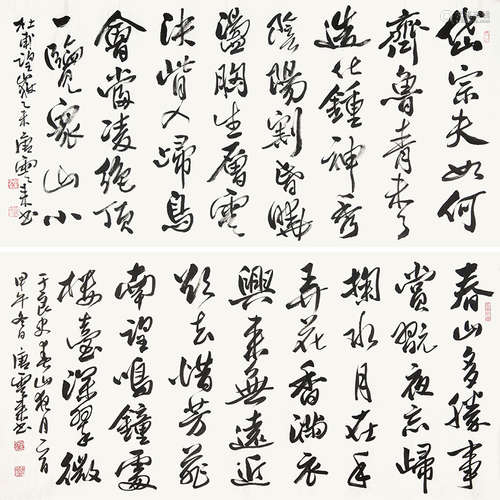 岱宗夫如何
齊魯青未了
造化鍾神秀
陰陽割昏曉
盪胸生層雲
決眥入歸鳥
會當凌絕頂
一覽衆山小
杜甫望嶽 唐雲來書
春山多勝事
賞翫夜忘歸
掬水月在手
弄花香滿衣
興來無遠近
欲去惜芳菲
南望鳴鐘處
樓臺深翠微
于良史春山夜月一首
甲午冬日唐雲來書